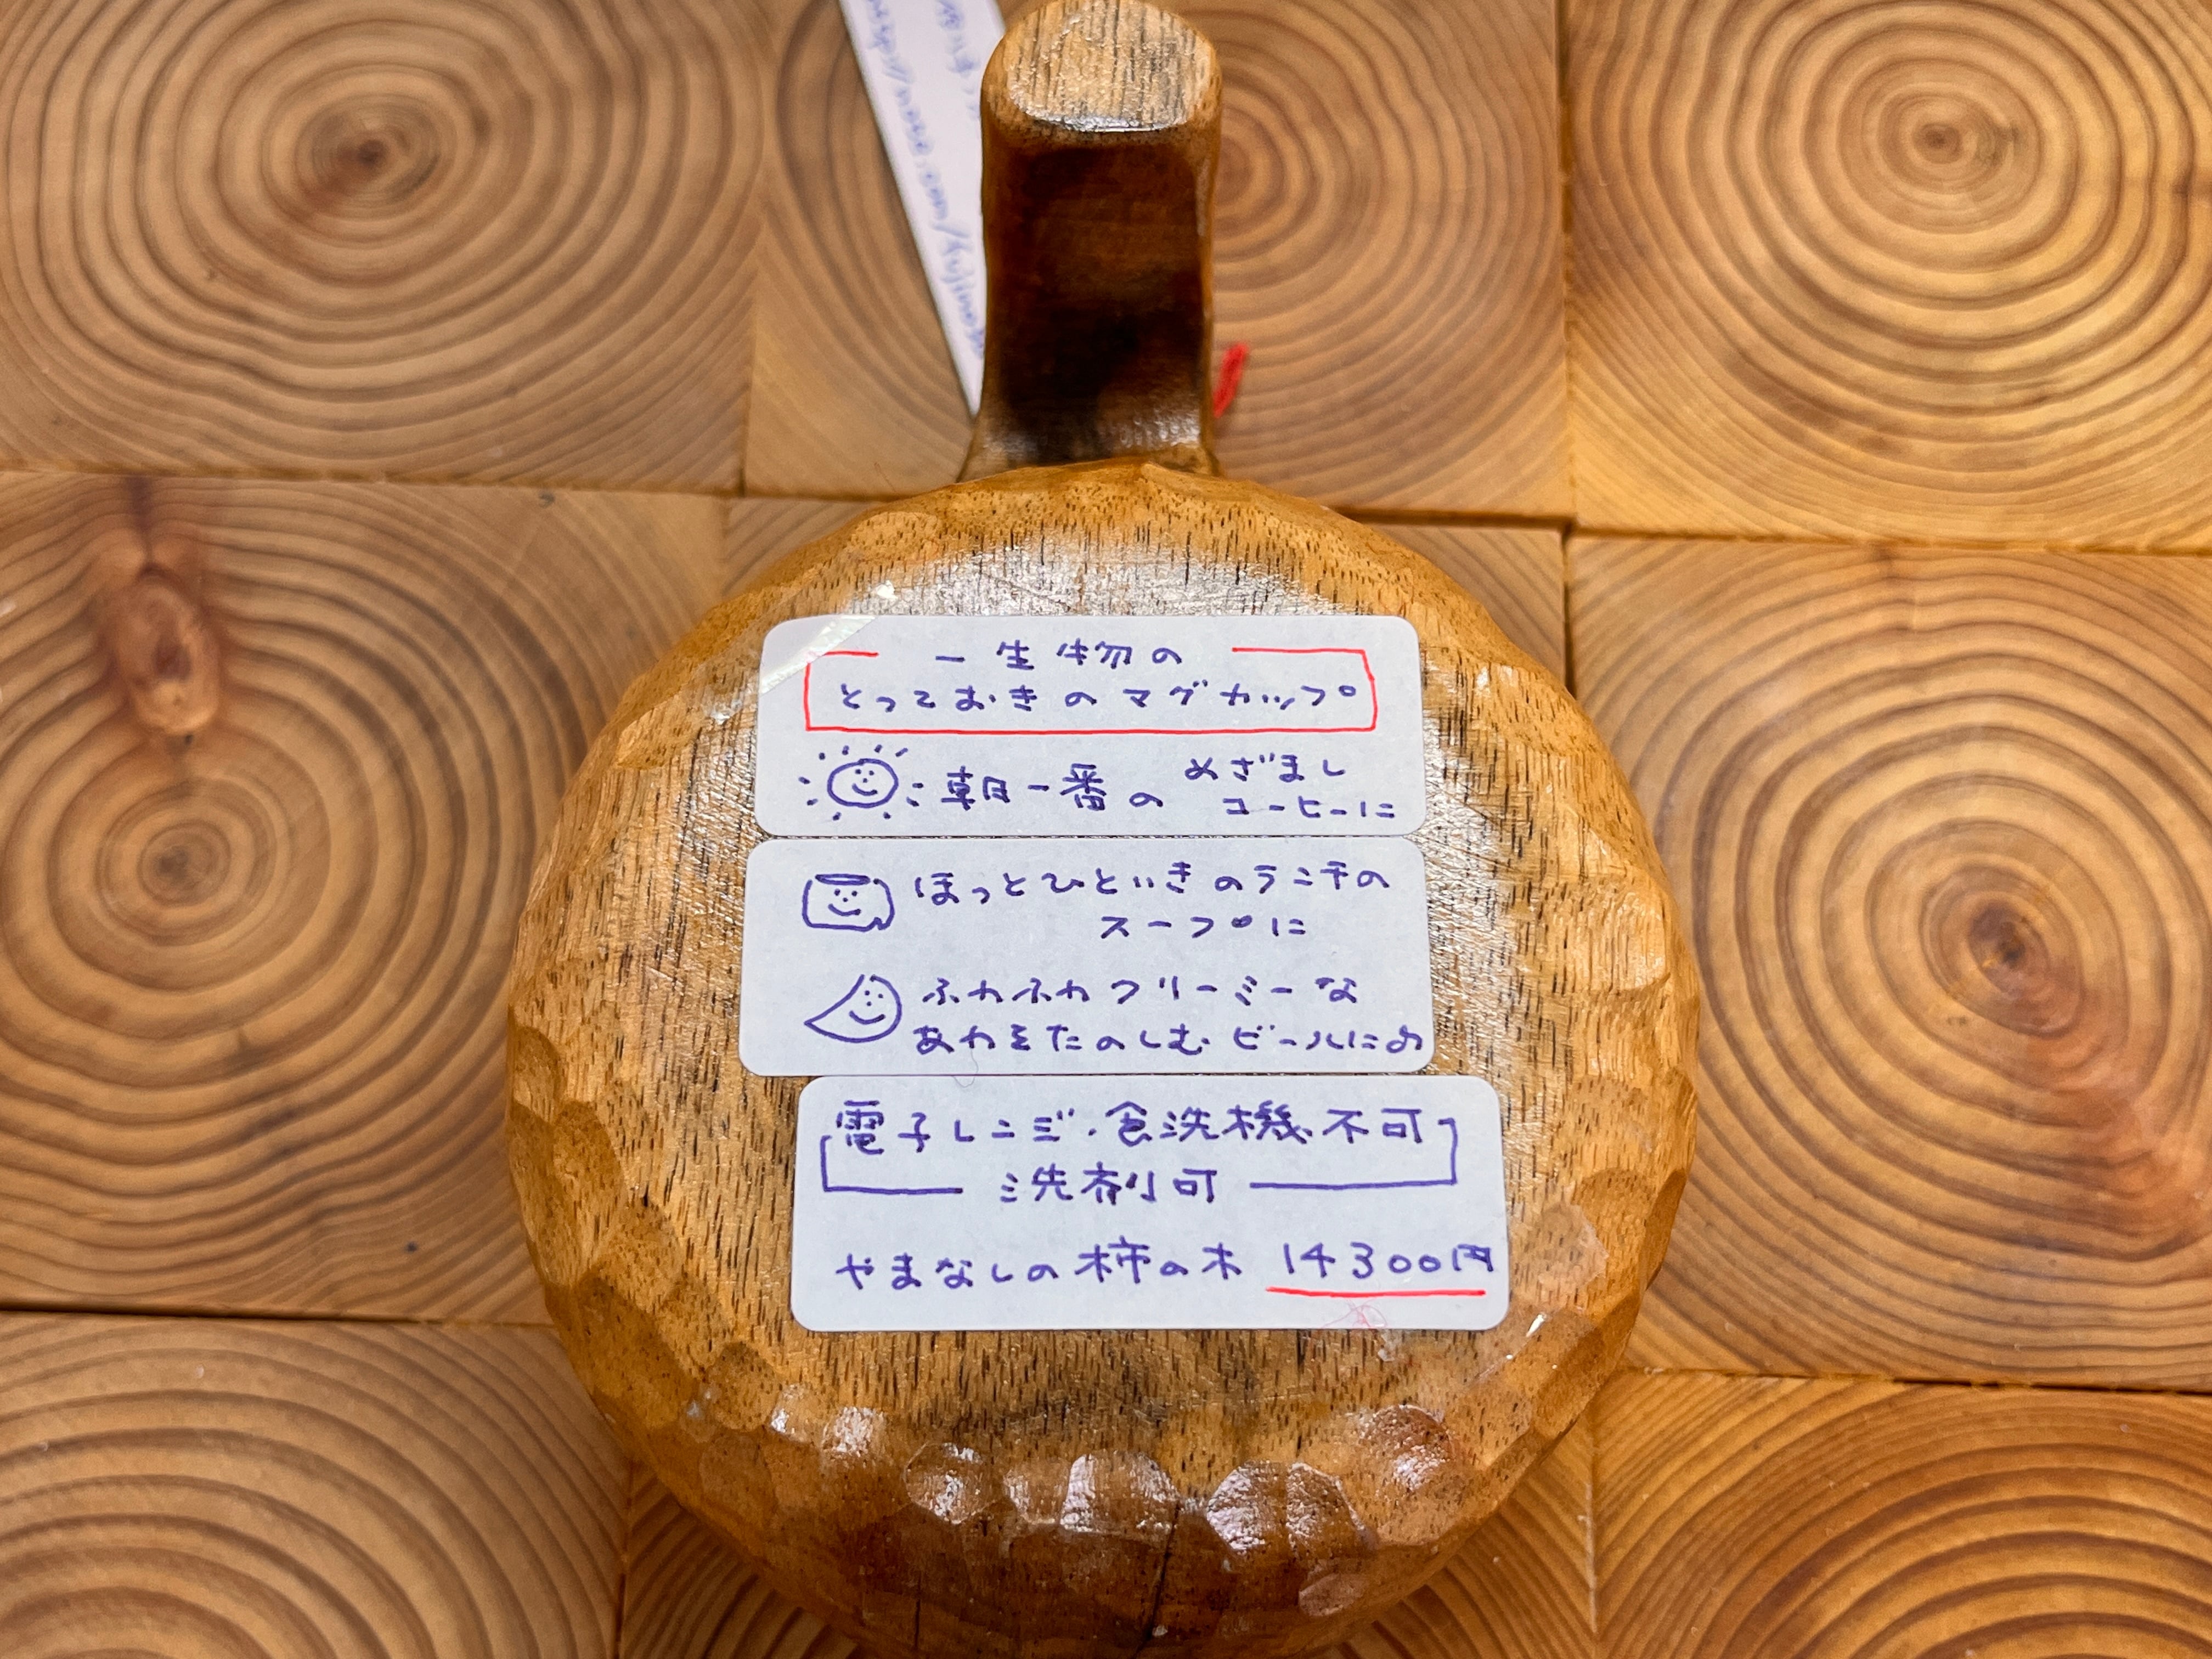 一生物の
とっておきのマグカップ
朝一番の めざまし
コーヒーに
ほっとひといきのランチの
スープに
ふわふわクリーミーな
あわをたのしむビールにも
電子レンジ・食洗機不可
洗剤可
やまなしの柿の木 14300円